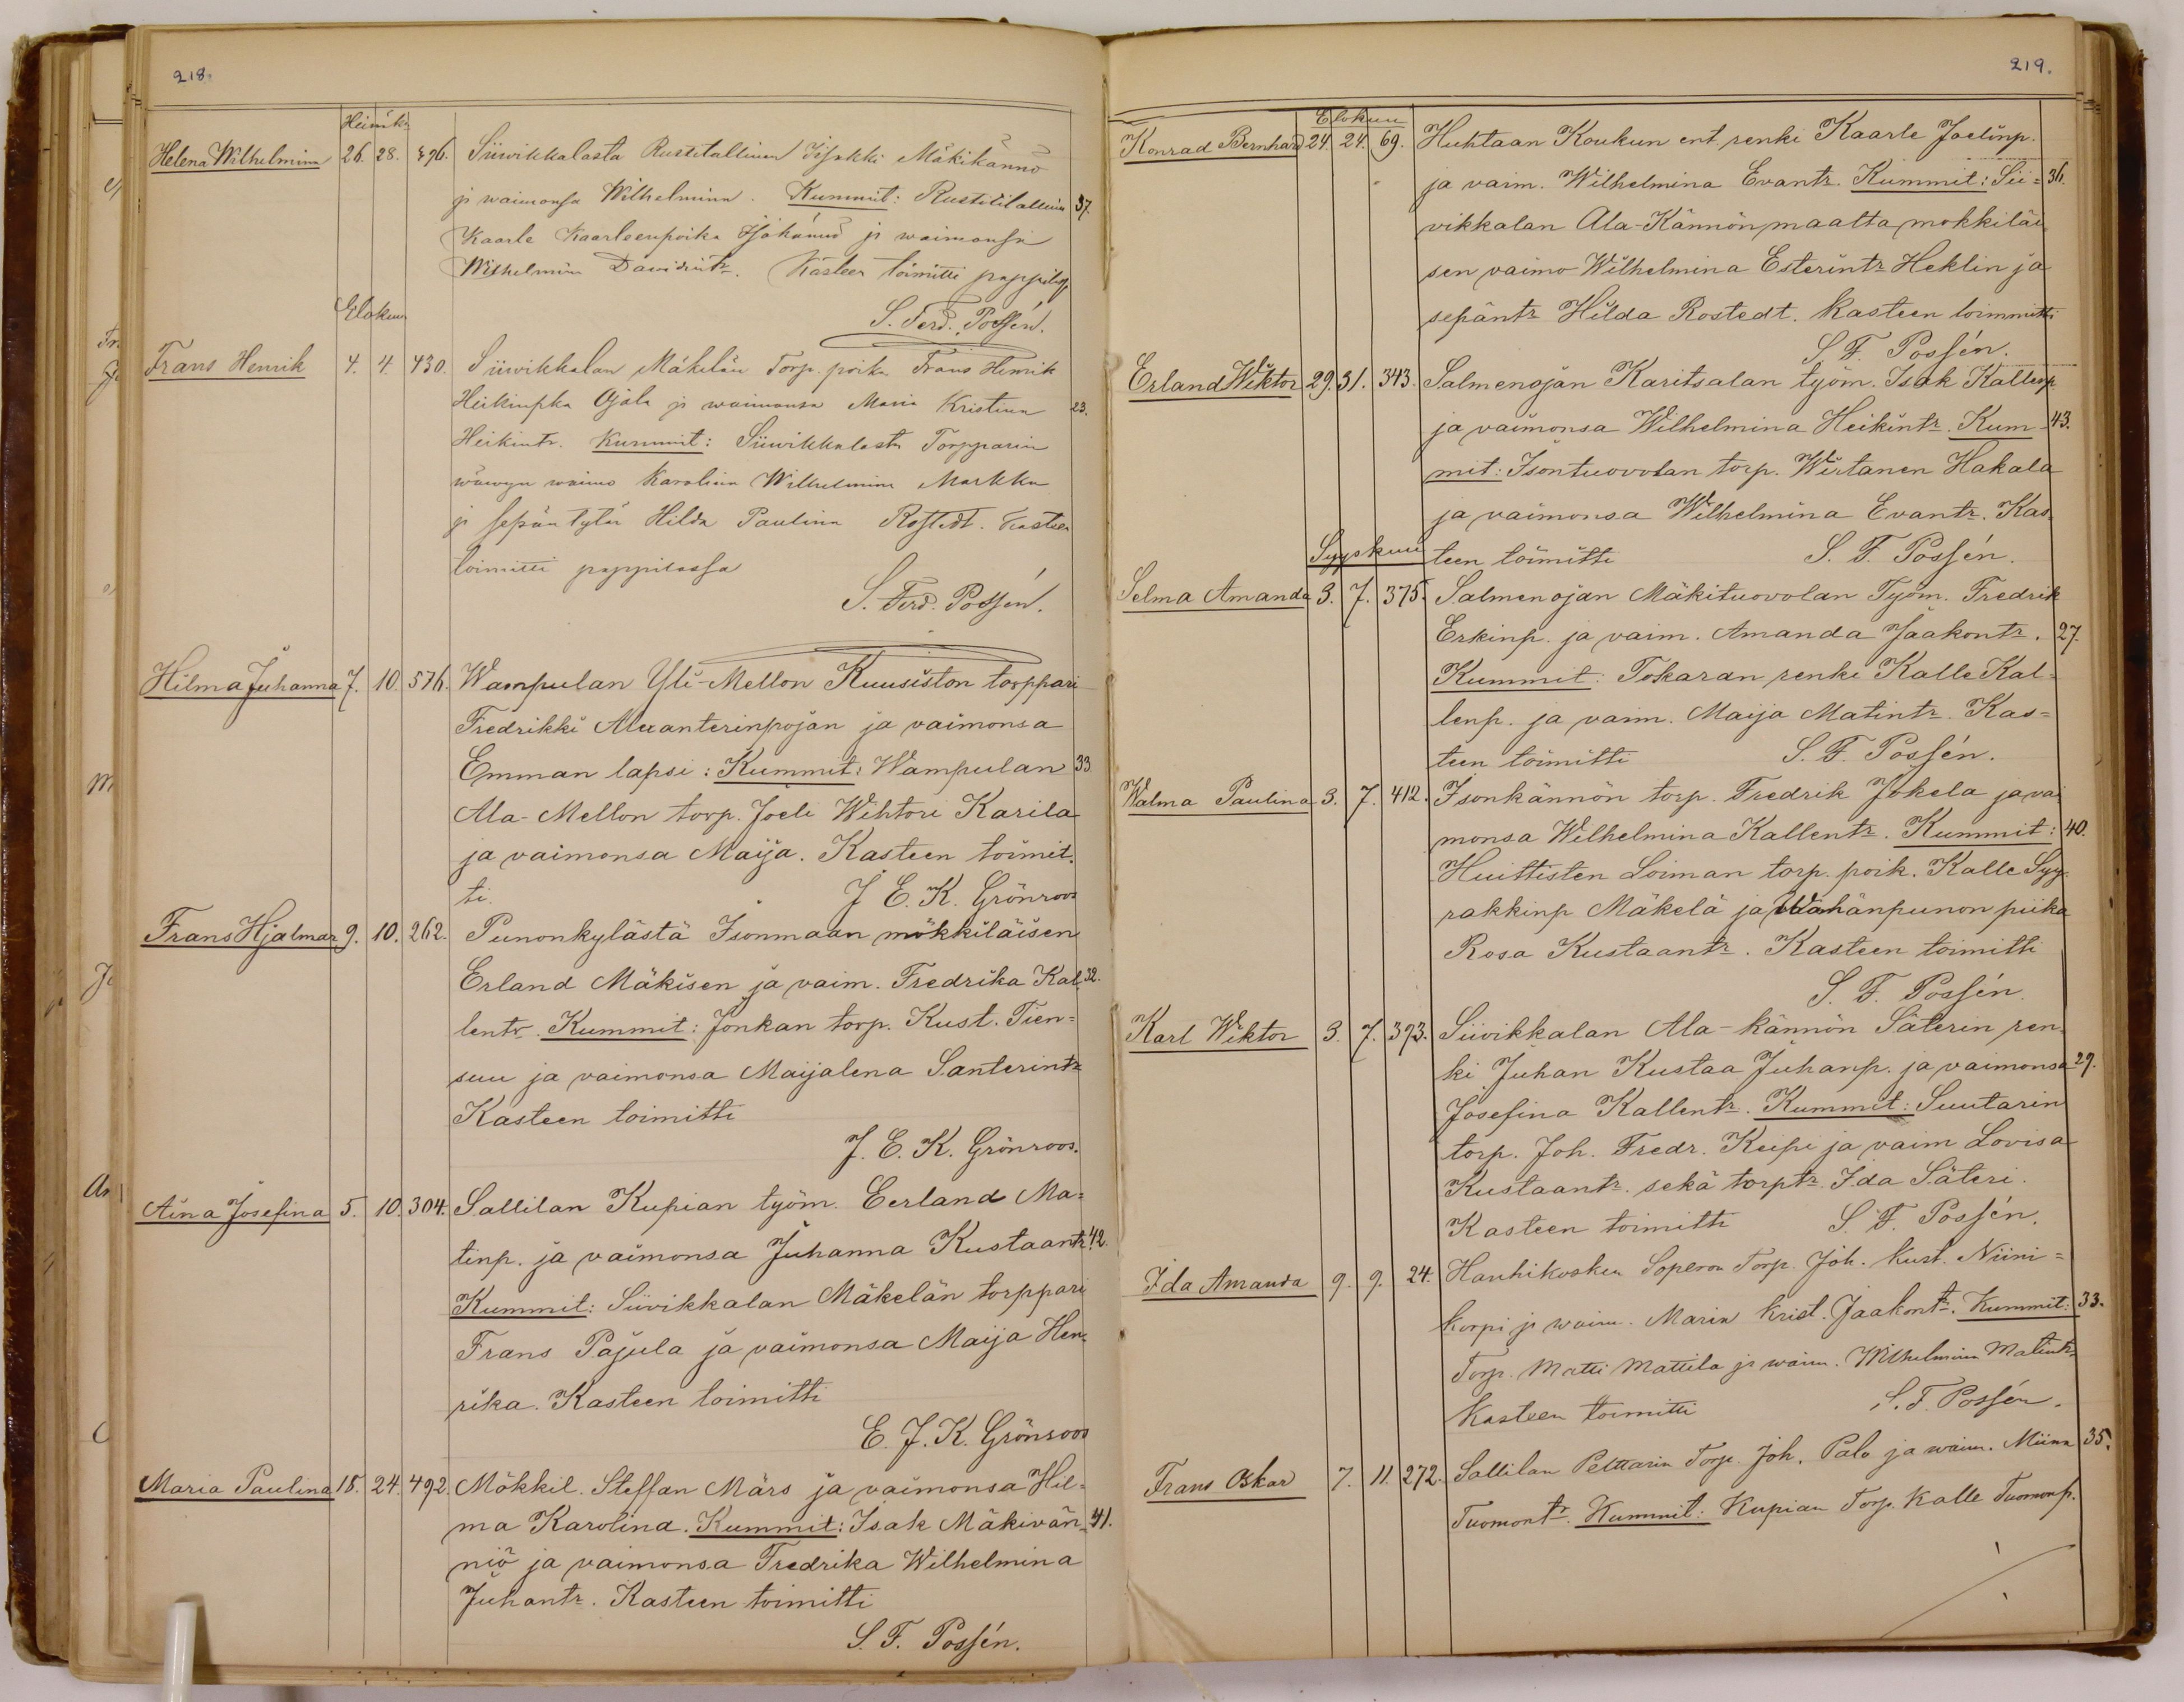 218.
Heinäk.
Helena Wilhelmina 26. 28. 396. Siiwikkalasta Rustitallinen Iisakki Mäkikännö
ja waimonsa Wilhelmina. Kummit: Rustitilallinen 37.
Kaarle Kaarleenpoika Isokännö ja waimonsa
Wilhelmina Dawidintr. Kasteen toimitti pappilassa
S. Ferd. Possén.
Elokuu
Frans Henrik 4. 4. 430. Siiwikkalan Mäkelän Torp. poika Frans Henrik
Heikinpka Ojala ja waimonsa Maria Kristina 23.
Heikintr. Kummit: Siiwikkalasta Torpparin
wäwyn waimo Karolina Wilhelmina Markku
ja sepän tytär Hilda Paulina Rostedt. Kasteen
toimitti pappilassa
S. Ferd. Possén.
Hilma Juhanna 7. 10. 576. Wampulan Yli-Mellon Kuusiston torppari
Fredrikki Alexanterinpojan ja vaimonsa
Emman lapsi: Kummit: Wampulan 33.
Ala-Mellon torp. Joeli Wihtori Karila
ja vaimonsa Maija. Kasteen toimit-
ti. J. E. K. Grönroos
Frans Hjalmar 9. 10. 262. Punonkylästä Isonmaan mökkiläisen
Erland Mäkisen ja vaim. Fredrika Kal- 32.
lentr. Kummit: Jonkan torp. Kust. Tien=
suu ja vaimonsa Maijalena Santerintr
Kasteen toimitti
J. E. K. Grönroos.
Aina Josefina 5. 10. 304. Sallilan Kupian työm. Eerland Ma=
tinp. ja vaimonsa Juhanna Kustaantr. 42.
Kummit: Siivikkalan Mäkelän torppari
Frans Pajula ja vaimonsa Maija Hen-
rika. Kasteen toimitti
E. J. K. Grönroos
Maria Paulina 18. 24. 492. Mökkil. Steffan Märs ja vaimonsa Hil=
ma Karolina. Kummit: Isak Mäkivän= 41.
niö ja vaimonsa Fredrika Wilhelmina
Juhantr. Kasteen toimitti
S. F. Possén.
219.
Elokuu
Konrad Bernhard 24. 24. 69. Huhtaan Koukun ent. renki Kaarle Joelinp.
ja vaim. Wilhelmina Evantr. Kummit: Sii= 36.
vikkalan Ala-Kännön maalta mökkiläi-
sen vaimo Wilhelmina Esterintr Heklin ja
sepäntr Hilda Rostedt. Kasteen toimmitti
S. F. Possén.
Erland Wiktor 29. 31. 343. Salmenojan Karitsalan työm. Isak Kallenp
ja vaimonsa Wilhelmina Heikintr. Kum- 43.
mit: Isontuovolan torp. Wirtanen Hakala
ja vaimonsa Wilhelmina Evantr. Kas-
Syyskuu teen toimitti S. F. Possén.
Selma Amanda 3. 7. 375. Salmenojan Mäkituovolan Työm. Fredrik
Erkinp. ja vaim. Amanda Jaakontr. 27.
Kummit: Tokaran renki Kalle Kal-
lenp. ja vaim. Maija Matintr. Kas=
teen toimitti S. F. Possén.
Walma Paulina 3. 7. 412. Isonkännön torp. Fredrik Jokela ja vai
monsa Wilhelmina Kallentr. Kummit: 40.
Huittisten Loiman torp. poik. Kalle Syy-
rakkinp Mäkelä ja Wähänpunon piika
Rosa Kustaantr. Kasteen toimitti
S. F. Possén.
Karl Wiktor 3. 7. 393. Siivikkalan Ala-kännön Säterin ren-
ki Juhan Kustaa Juhanp. ja vaimonsa 29.
Josefina Kallentr. Kummit: Suutarin
torp. Joh. Fredr. Keipi ja vaim Lovisa
Kustaantr. sekä torptr. Ida Säteri.
Kasteen toimitti S. F. Possén.
Ida Amanda 9. 9. 24. Hanhikosken Soperon Torp. Joh. Kust. Niini=
korpi ja waim. Maria Krist. Jaakontr. Kummit: 33.
Torp. Matti Mattila ja waim. Wilhelmina Matintr.
Kasteen toimitti S. F. Possén.
Frans Oskar 7. 11. 272. Sallilan Pelttarin Torp. Joh. Palo ja waim. Miina 35.
Tuomontr. Kummit: Kupian Torp. Kalle Tuomonp.